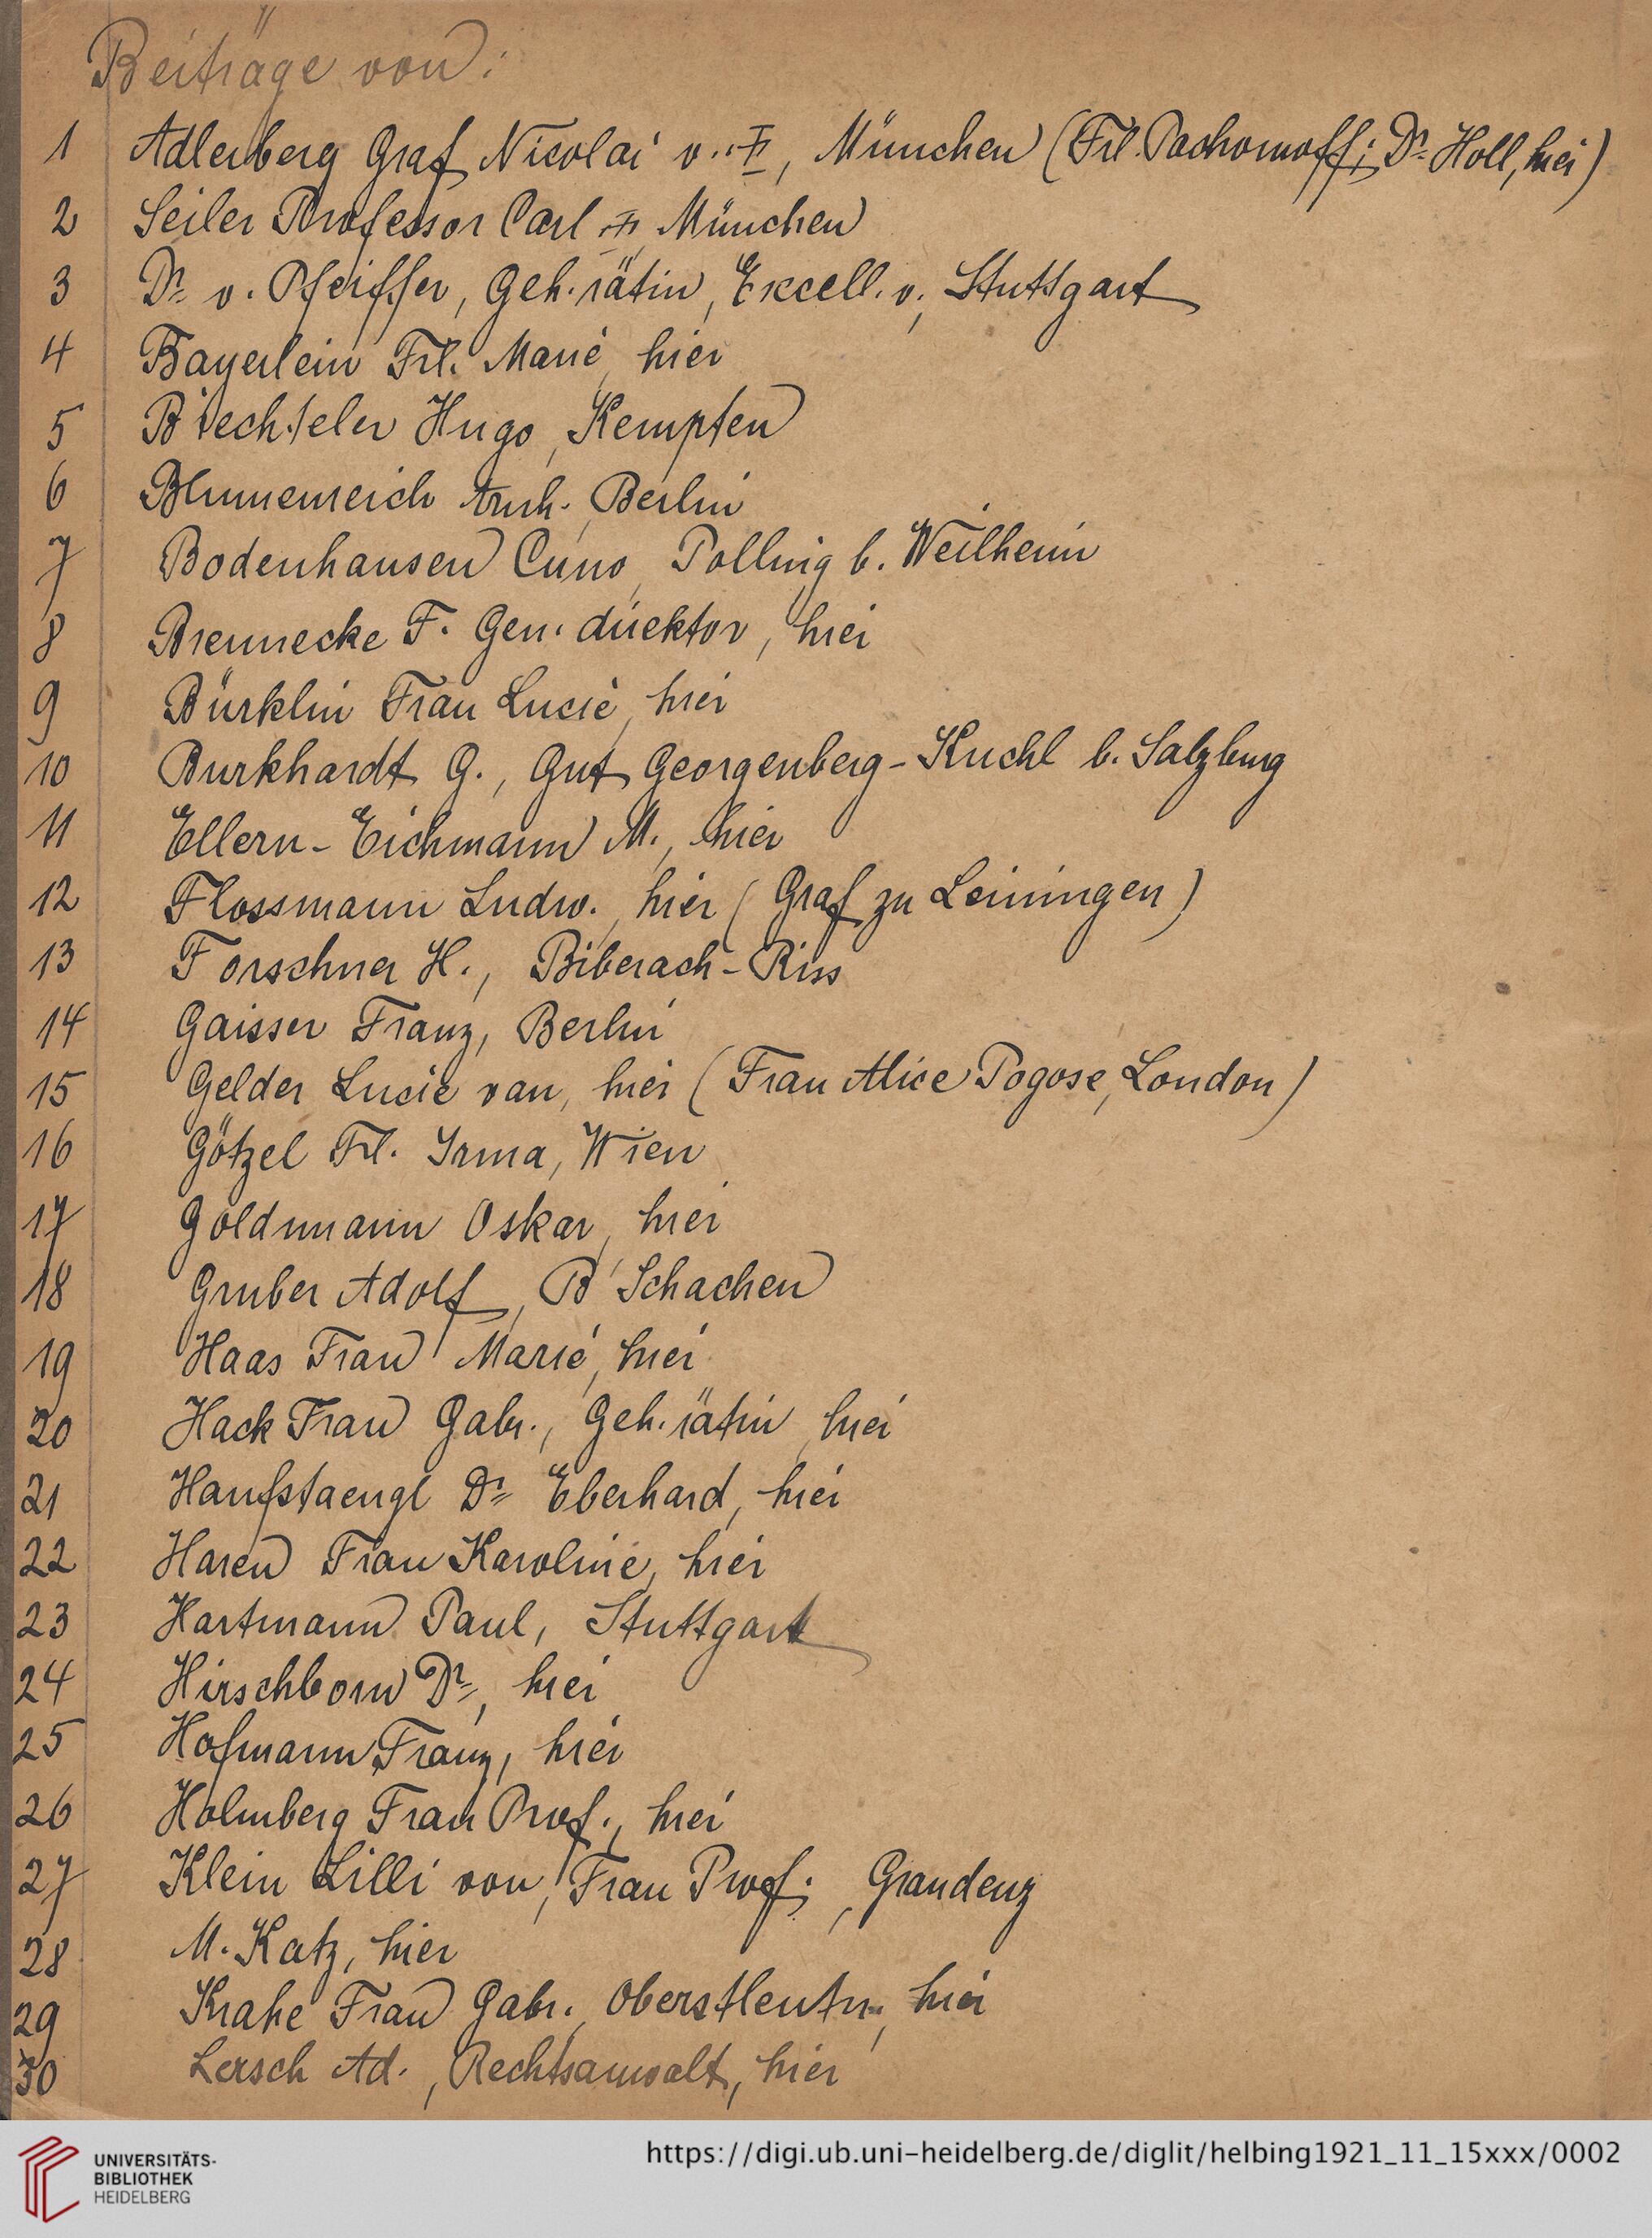 Beiträge von:
1 Adlerberg Graf Nicolai v. ✝, München (Frl. Pachomoff; Dr. Holl, hier)
2 Seiler Professor Carl ✝, München
3 Dr. v. Pfeiffer, Geh. rätin, Excell. v., Stuttgart
4 Bayerlein Frl. Marie, hier
5 Biechteler Hugo, Kempten
6 Blumenreich Berlin
7 Bodenhausen Cuno, Polling b. Weilheim
8 Brennecke F. Gen. direktor, hier
9 Bürklin Frau Lucie, hier
10 Burkhardt G., Gut Georgenberg-Kuchl b. Salzburg
11 Ellern-Eichmann M., hier
12 Flossmann Ludw., hier (Graf zu Leiningen)
13 Forschner H., Biberach-Riss
14 Gaisser Franz, Berlin
15 Gelder Lucie van, hier (Frau Alice Pogose, London)
16 Götzel Frl. Irma, Wien
17 Goldmann Oskar, hier
18 Gruber Adolf, B' Schachen
19 Haas Frau Marie, hier
20 Hack Frau Gabr., Geh. rätin, hier
21 Hanfstaengl Dr. Eberhard, hier
22 Haren Frau Karoline, hier
23 Hartmann Paul, Stuttgart
24 Hirschborn Dr., hier
25 Hofmann Franz, hier
26 Holmberg Frau Prof., hier
27 Klein Lilli von, Frau Prof., Graudenz
28 M. Katz, hier
29 Krahe Frau Gabr., Oberstleutn., hier
30 Lersch Ad., Rechtsanwalt, hier
UNIVERSITÄTS-
BIBLIOTHEK
HEIDELBERG
https://digi.ub.uni-heidelberg.de/diglit/helbing1921_11_15xxx/0002